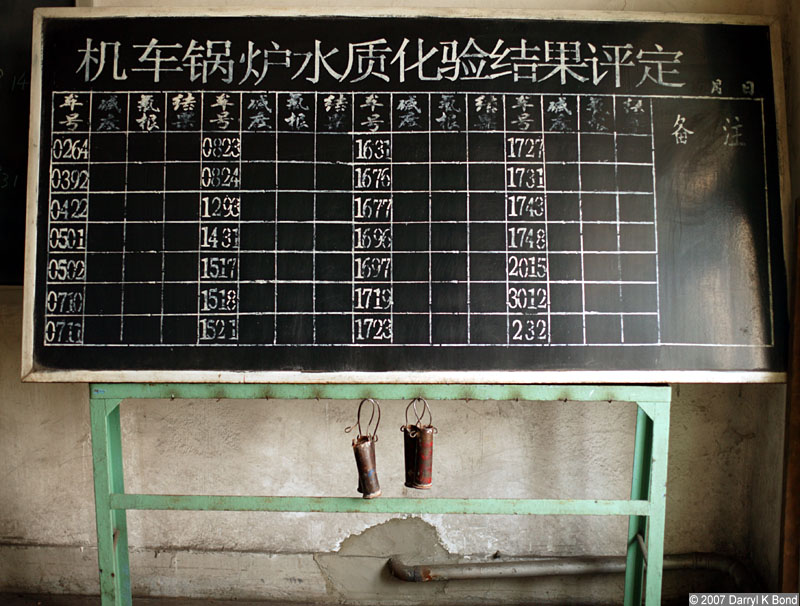 机车锅炉水质化验结果评定
月 日
车号 碱度 氯根 结果 车号 碱度 氯根 结果 车号 碱度 氯根 结果 车号 碱度 氯根 结果 备注
0264 0823 1631 1727
0392 0824 1676 1731
0422 1293 1677 1743
0501 1431 1696 1748
0502 1517 1697 2015
0710 1518 1719 3012
0711 1521 1723 232
© 2007 Darryl K Bond